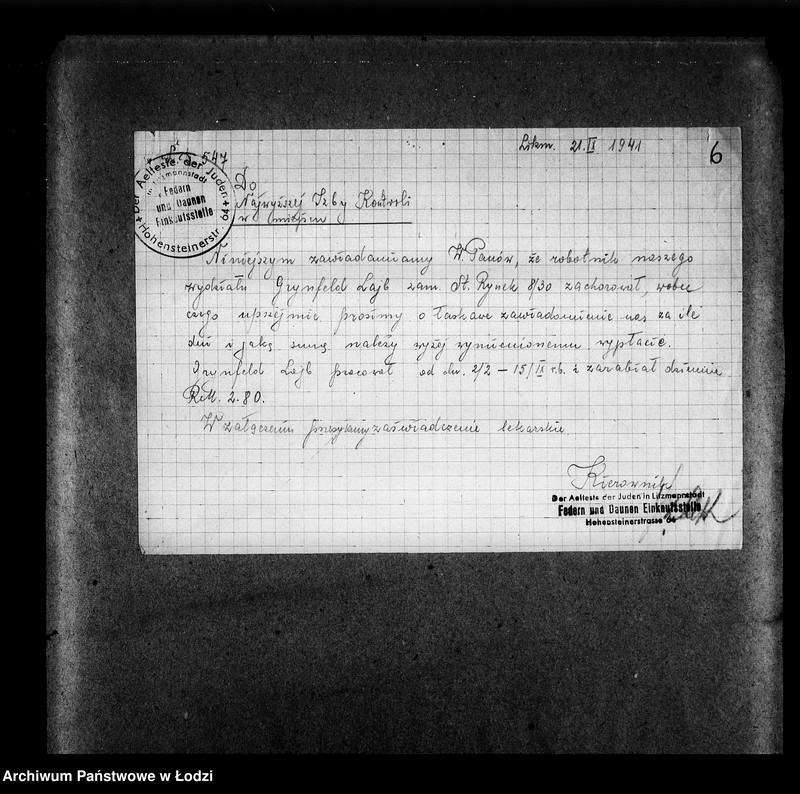 547
Litzm. 21.IX 1941
6
Der Aelteste der Juden
in Litzmannstadt
Federn
und Daunen
Einkaufsstelle
Hohensteinerstr. 64
Do
Najwyższej Izby Kontroli
w miejscu
Niniejszym zawiadamiamy W. Panów, że robotnik naszego
wydziału Grynfeld Lajb zam. St. Rynek 8/30 zachorował, wobec
czego uprzejmie prosimy o łaskawe zawiadomienie nas za ile
dni i jaką sumę należy wyżej wymienionemu wypłacić.
Grynfeld Lajb pracował od dn. 2/2 – 15/IX r.b. i zarabiał dziennie
RM. 2.80.
W załączeniu przesyłamy zaświadczenie lekarskie
Kierownik
Der Aelteste der Juden in Litzmannstadt
Federn und Daunen Einkaufsstelle
Hohensteinerstrasse 64
Archiwum Państwowe w Łodzi